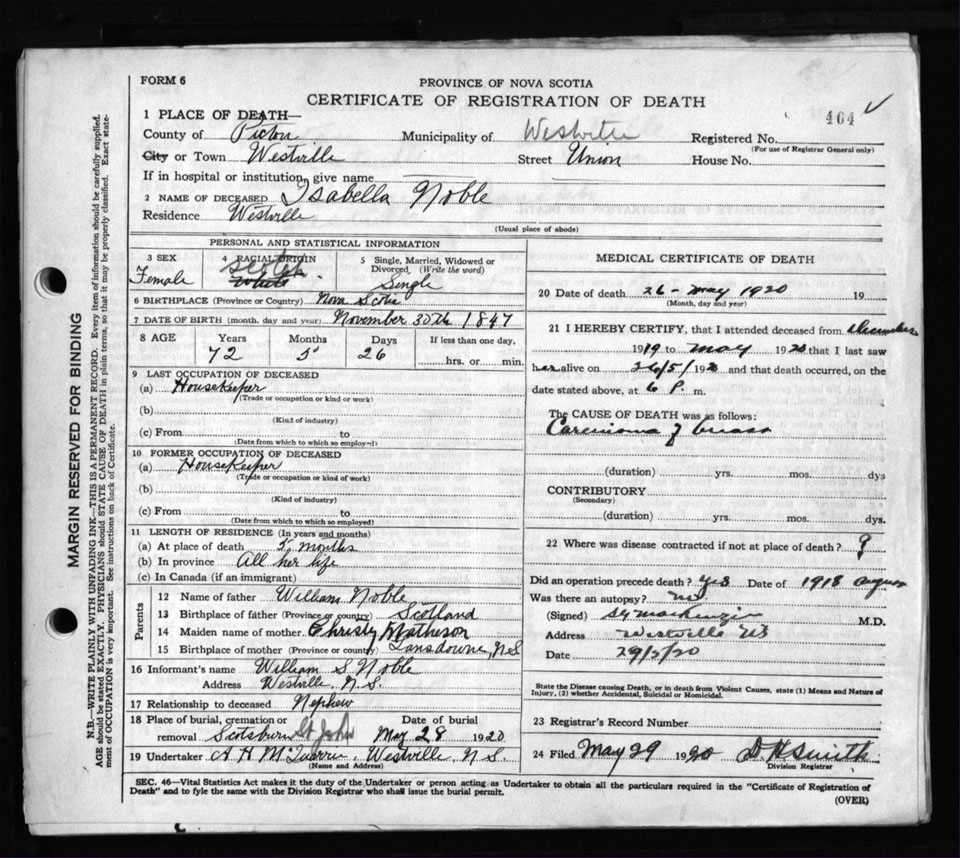 FORM 6
PROVINCE OF NOVA SCOTIA
CERTIFICATE OF REGISTRATION OF DEATH
464
1 PLACE OF DEATH—
County of Pictou Municipality of Westville Registered No.
(For use of Registrar General only)
City or Town Westville Street Union House No.
If in hospital or institution, give name
2 NAME OF DECEASED Isabella Noble
Residence Westville
(Usual place of abode)
PERSONAL AND STATISTICAL INFORMATION
3 SEX
Female
4 RACIAL ORIGIN
Scotch
White
5 Single, Married, Widowed or Divorced (Write the word)
Single
6 BIRTHPLACE (Province or Country) Nova Scotia
7 DATE OF BIRTH (month, day and year) November 30th 1847
8 AGE Years Months Days If less than one day,
72 5 26 hrs. or min.
9 LAST OCCUPATION OF DECEASED
(a) Housekeeper
(Trade or occupation or kind or work)
(b)
(Kind of industry)
(c) From to
(Date from which to which so employed)
10 FORMER OCCUPATION OF DECEASED
(a) Housekeeper
(Trade or occupation or kind of work)
(b)
(Kind of industry)
(c) From to
(Date from which to which so employed)
11 LENGTH OF RESIDENCE (In years and months)
(a) At place of death 5 months
(b) In province All her life
(c) In Canada (if an immigrant)
Parents
12 Name of father William Noble
13 Birthplace of father (Province or country) Scotland
14 Maiden name of mother Christy Matheson
15 Birthplace of mother (Province or country) Lansdowne, N.S
16 Informant's name William S. Noble
Address Westville, N.S.
17 Relationship to deceased Nephew
18 Place of burial, cremation or removal Scotsburn St John Date of burial May 28 1920
19 Undertaker A H McQuarrie, Westville, N.S.
(Name and Address)
MEDICAL CERTIFICATE OF DEATH
20 Date of death 26 - May 1920 19
(Month, day and year)
21 I HEREBY CERTIFY, that I attended deceased from December
1919 to May 1920 that I last saw
her alive on 26/5/1920 and that death occurred, on the
date stated above, at 6 P. m.
The CAUSE OF DEATH was as follows:
Carcinoma of breast
(duration) yrs. mos. dys
CONTRIBUTORY
(Secondary)
(duration) yrs. mos. dys.
22 Where was disease contracted if not at place of death? ?
Did an operation precede death? Yes Date of 1918 August
Was there an autopsy? no
(Signed) Mackenzie M.D.
Address Westville NS
Date 29/5/20
State the Disease causing Death, or in death from Violent Causes, state (1) Means and Nature of
Injury, (2) whether Accidental, Suicidal or Homicidal.
23 Registrar's Record Number
24 Filed May 29 1920 D H Smith
Division Registrar
SEC. 46—Vital Statistics Act makes it the duty of the Undertaker or person acting as Undertaker to obtain all the particulars required in the "Certificate of Registration of
Death" and to fyle the same with the Division Registrar who shall issue the burial permit.
(OVER)
MARGIN RESERVED FOR BINDING
N.B.—WRITE PLAINLY WITH UNFADING INK—THIS IS A PERMANENT RECORD. Every item of information should be carefully supplied.
AGE should be stated EXACTLY. PHYSICIANS should STATE CAUSE OF DEATH in plain terms, so that it may be properly classified. Exact statement
of OCCUPATION is very important. See instructions on back of Certificate.